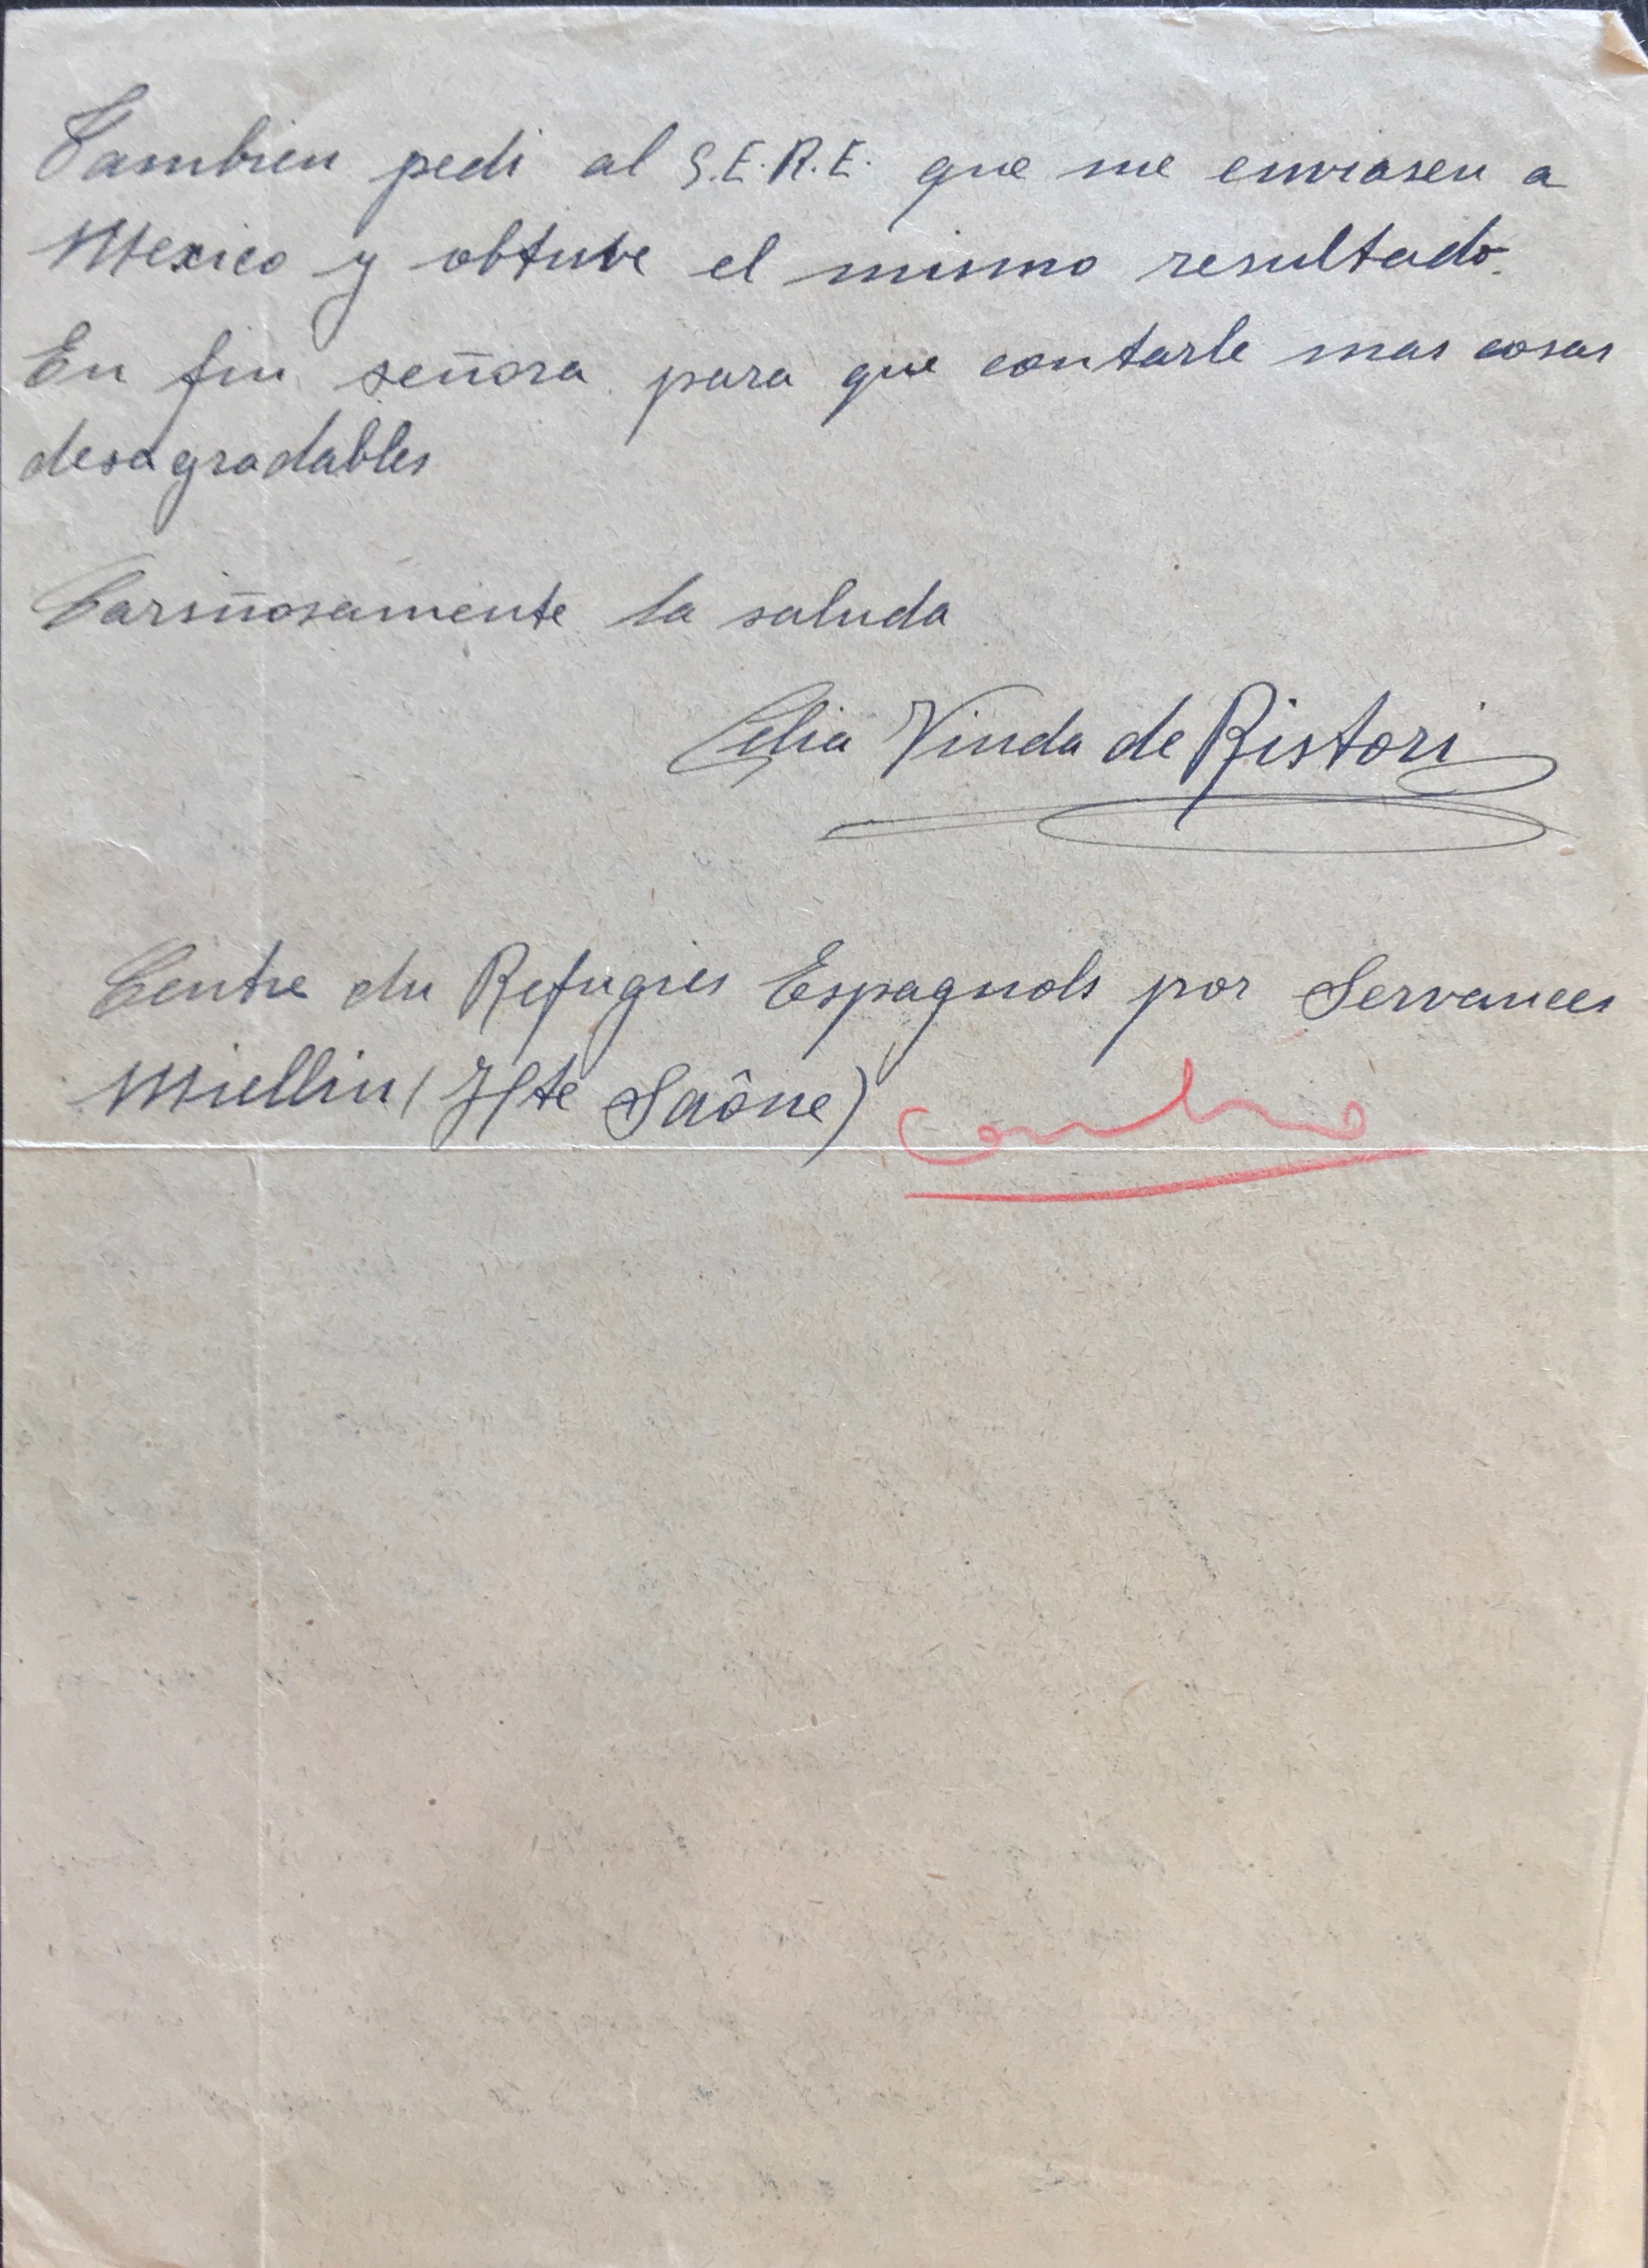 Tambien pedi al S.E.R.E. que me enviasen a
Mexico y obtube el mismo resultado.
En fin señora para que contarle mas cosas
desagradables
Cariñosamente la saluda
Celia Viuda de Ristori
Centre du Refugies Espagnols por Servances
Miellin (Hte Saône)